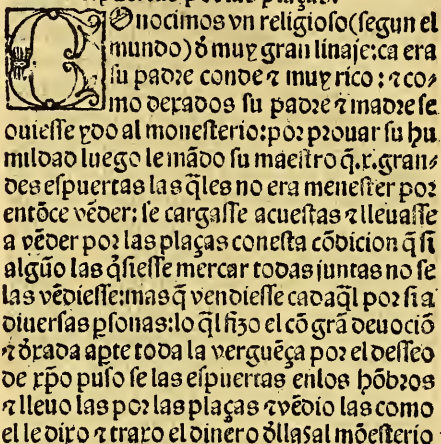 COnocimos vn religioſo(ſegun el
mundo)ď muy gran linaje:ca era
ſu padre conde ⁊ muy rico : ⁊ co-
mo dexados ſu padre ⁊ madre ſe
ouieſſe ydo al moneſterio:por prouar ſu hu
mildad luego le mãdo ſu maeſtro q̃.x.gran-
des eſpuertas las q̃les no era meneſter por
entõce vẽder: ſe cargaſſe acueſtas ⁊ lleuaſſe
a vẽder por las plaças coneſta cõdicion q̃ ſi
algũo las q̃ſieſſe mercar todas juntas no ſe
las vẽdieſſe:mas q̃ vendieſſe cadaq̃l por ſi a
diuerſas ꝑſonas:lo q̃l fizo el cõ grã deuociõ
⁊ ďxada aꝑte toda la verguẽça por el deſſeo
de xp̃o puſo ſe las eſpuertas enlos hõbros
⁊ lleuo las por las plaças ⁊ vẽdio las como
el le dixo ⁊ traxo el dinero ďllas al mõeſterio